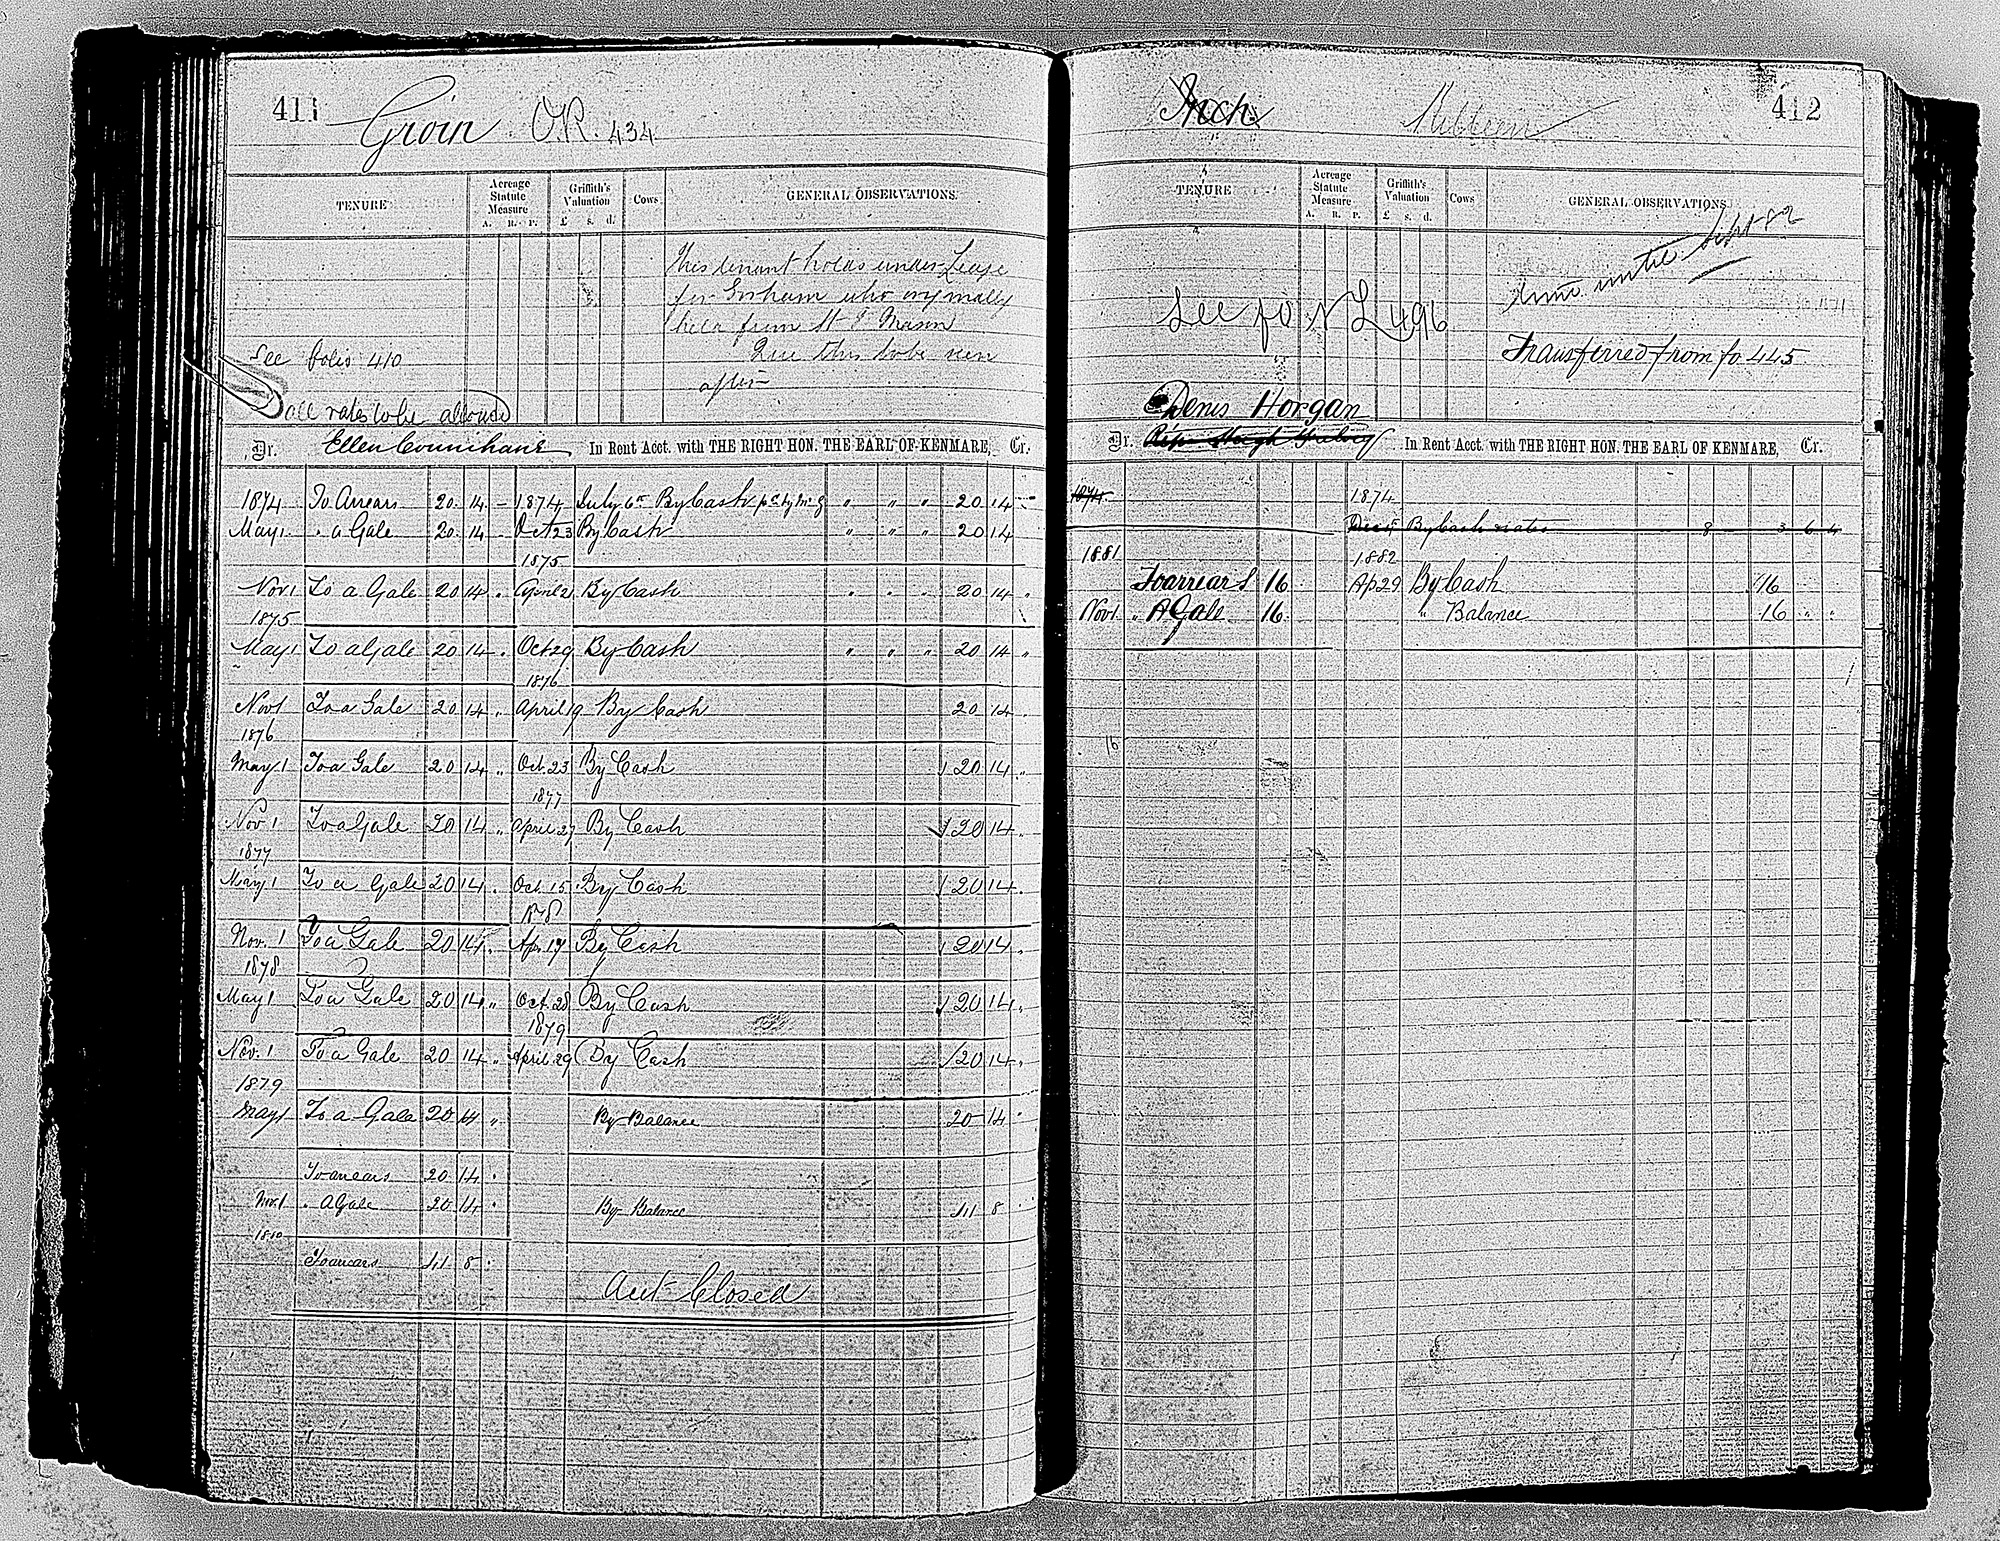 411 Groin O.R. 434
TENURE Acreage Statute Measure A. R. P. Griffith's Valuation £ s. d. Cows. GENERAL OBSERVATIONS.
This tenant holds under Lease
for who originally
held from St Mason
this to be seen
See folio 410
after
all rates to be allowed
Dr. Ellen Counihane In Rent Acct. with THE RIGHT HON. THE EARL OF KENMARE, Cr.
1874 To Arrears 20 14 - 1874 July 6th By Cash pd by Mr G " " " 20 14
May 1 " a Gale 20 14 - Oct 23 By Cash " " " 20 14
1875
Nov 1 To a Gale 20 14 " April 2 By Cash " " " 20 14 "
1875
May 1 To a Gale 20 14 " Oct 29 By Cash " " " 20 14 "
1876
Nov 1 To a Gale 20 14 " April 19 By Cash 20 14
1876
May 1 To a Gale 20 14 " Oct. 23 By Cash 20 14 "
1877
Nov 1 To a Gale 20 14 " April 27 By Cash 20 14 "
1877
May 1 To a Gale 20 14 " Oct. 15 By Cash 20 14 "
1878
Nov. 1 To a Gale 20 14 " Ap. 17 By Cash 20 14 "
1878
May 1 To a Gale 20 14 " Oct. 28 By Cash 20 14 "
1879
Nov. 1 To a Gale 20 14 " April 29 By Cash 20 14 "
1879
May 1 To a Gale 20 14 " By Balance 20 14 "
To arrears 20 14 "
Nov. 1 " A Gale 20 14 " By Balance 41 8 "
1880
To arrears 41 8 "
Act Closed
Inch 412
TENURE Acreage Statute Measure A. R. P. Griffith's Valuation £ s. d. Cows GENERAL OBSERVATIONS.
until Sept 82
See fo N L 496
Transferred from fo 445
Denis Horgan
Dr. In Rent Acct. with THE RIGHT HON. THE EARL OF KENMARE, Cr.
1874 1874
By Cash rates 8 3 6 4
1881 1882
To arrears 16 Ap 29 By Cash 16
Nov 1 " A Gale 16 " Balance 16 " "
16